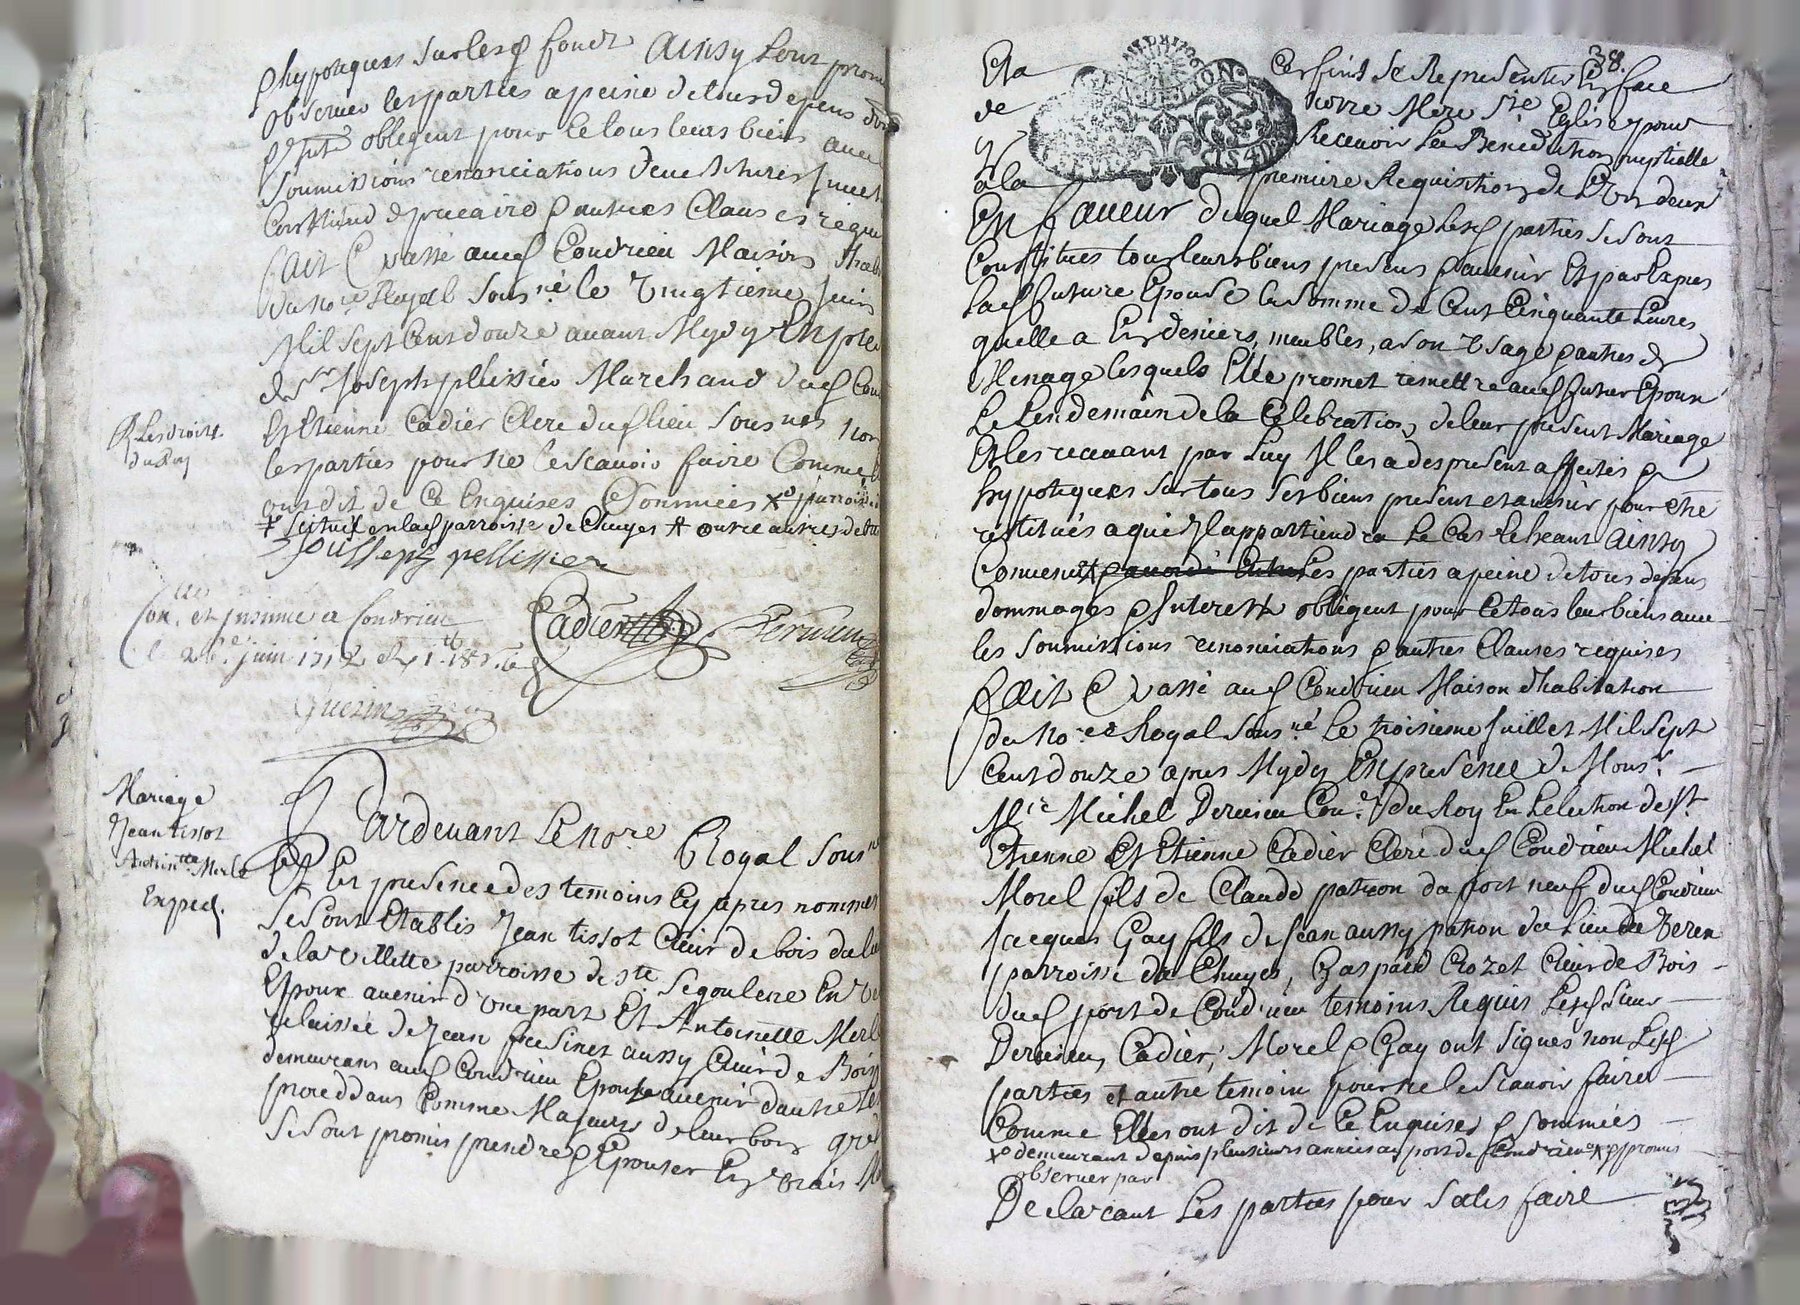 hypotequés sur lesq fondz Ainsy l'ont prom
observer les parties a peine de tous depens dom
obligent pour ce tous leurs biens avec
soumissions renonciations
Constitué de precaire & autres Clauses requi
fait & passé aud Condrieu Maison
du no.re Royal sous.né le vingtieme Juin
Mil sept Cent douze avant Mydy En pre
de Sr Joseph plissieu Marchand dud Con
Et Etienne Cadier Clerc dud lieu sous nés non
les parties pour ne le scavoir faire Comme
ont dit de Ce Enquises & sommées
scitué en lad parroisse de Chuyes # outre autres
Les droits
du Roy
Jousseph pellissier
Con.lé et Insinué a Condrieu
le juin 1712
Cadier
Guerin
Mariage
Jean tissot
Antoin.tte Merle
Exped.
Pardevant Le No.re Royal sous.né
Et En presence des temoins Cy apres nommés
se sont Etablis Jean tissot Cieur de bois du lieu
de la Villette parroisse de Ste Segoulene En
Epoux avenir d'une part Et Antoinette Merl
relaissée de Jean fresinet aussy Cieur de Bois
demeurans aud Condrieu Epouse avenir dautre
procedans Comme Majeurs de leur bon gré
se sont promis prendre & Epouser En vrais
38.
Et a Ces fins se Representer En face
de notre Mere Ste Eglise pour
y Recevoir La Benediction nuptielle
a la premiere Requisition de L'Un deux
En faveur duquel Mariage Lesd parties se sont
Constitués tous leurs biens presens & avenir Et par Expres
lad future Epouse la somme de Cent Cinquante Livres
quelle a En deniers, meubles, a son Usage & autres de
Menage lesquels Elle promet remettre aud futur Epoux
Le Lendemain de la Celebration de leur present Mariage
Et les recevant par Luy Il les a des present affectés &
hypotequés sur tous ses biens present et avenir pour etre
restitués a qui Il appartiendra Le Cas Echeant Ainsy
Convenu Les parties a peine de tous depens
dommages & Interestz obligent pour Ce tous leur biens avec
les soumissions renonciations & autres Clauses requises
fait & passé aud Condrieu Maison d'habitation
du No.re Royal sous.né Le troisieme Juillet Mil Sept
Cent douze apres Mydy En presence de Mons.r
M.re Michel Dervieu Con.er du Roy En Lelection de St
Etienne Et Etienne Cadier Clerc dud Condrieu Michel
Morel fils de Claude patron du port neuf dud Condrieu
Jacques Gay fils de Jean aussy patron du Lieu de Verin
parroisse de Chuyes, Gaspard Crozet Cieur de Bois
dud port de Condrieu temoins Requis Lesd Sieur
Dervieu, Cadier, Morel & Gay ont signés non Lesd
parties et autre temoin pour ne le scavoir faire
Comme Elles ont dit de Ce Enquises & sommées
demeurant depuis plusieurs années au port de Condrieu & promis
observer par
Declarant Les parties pour satisfaire